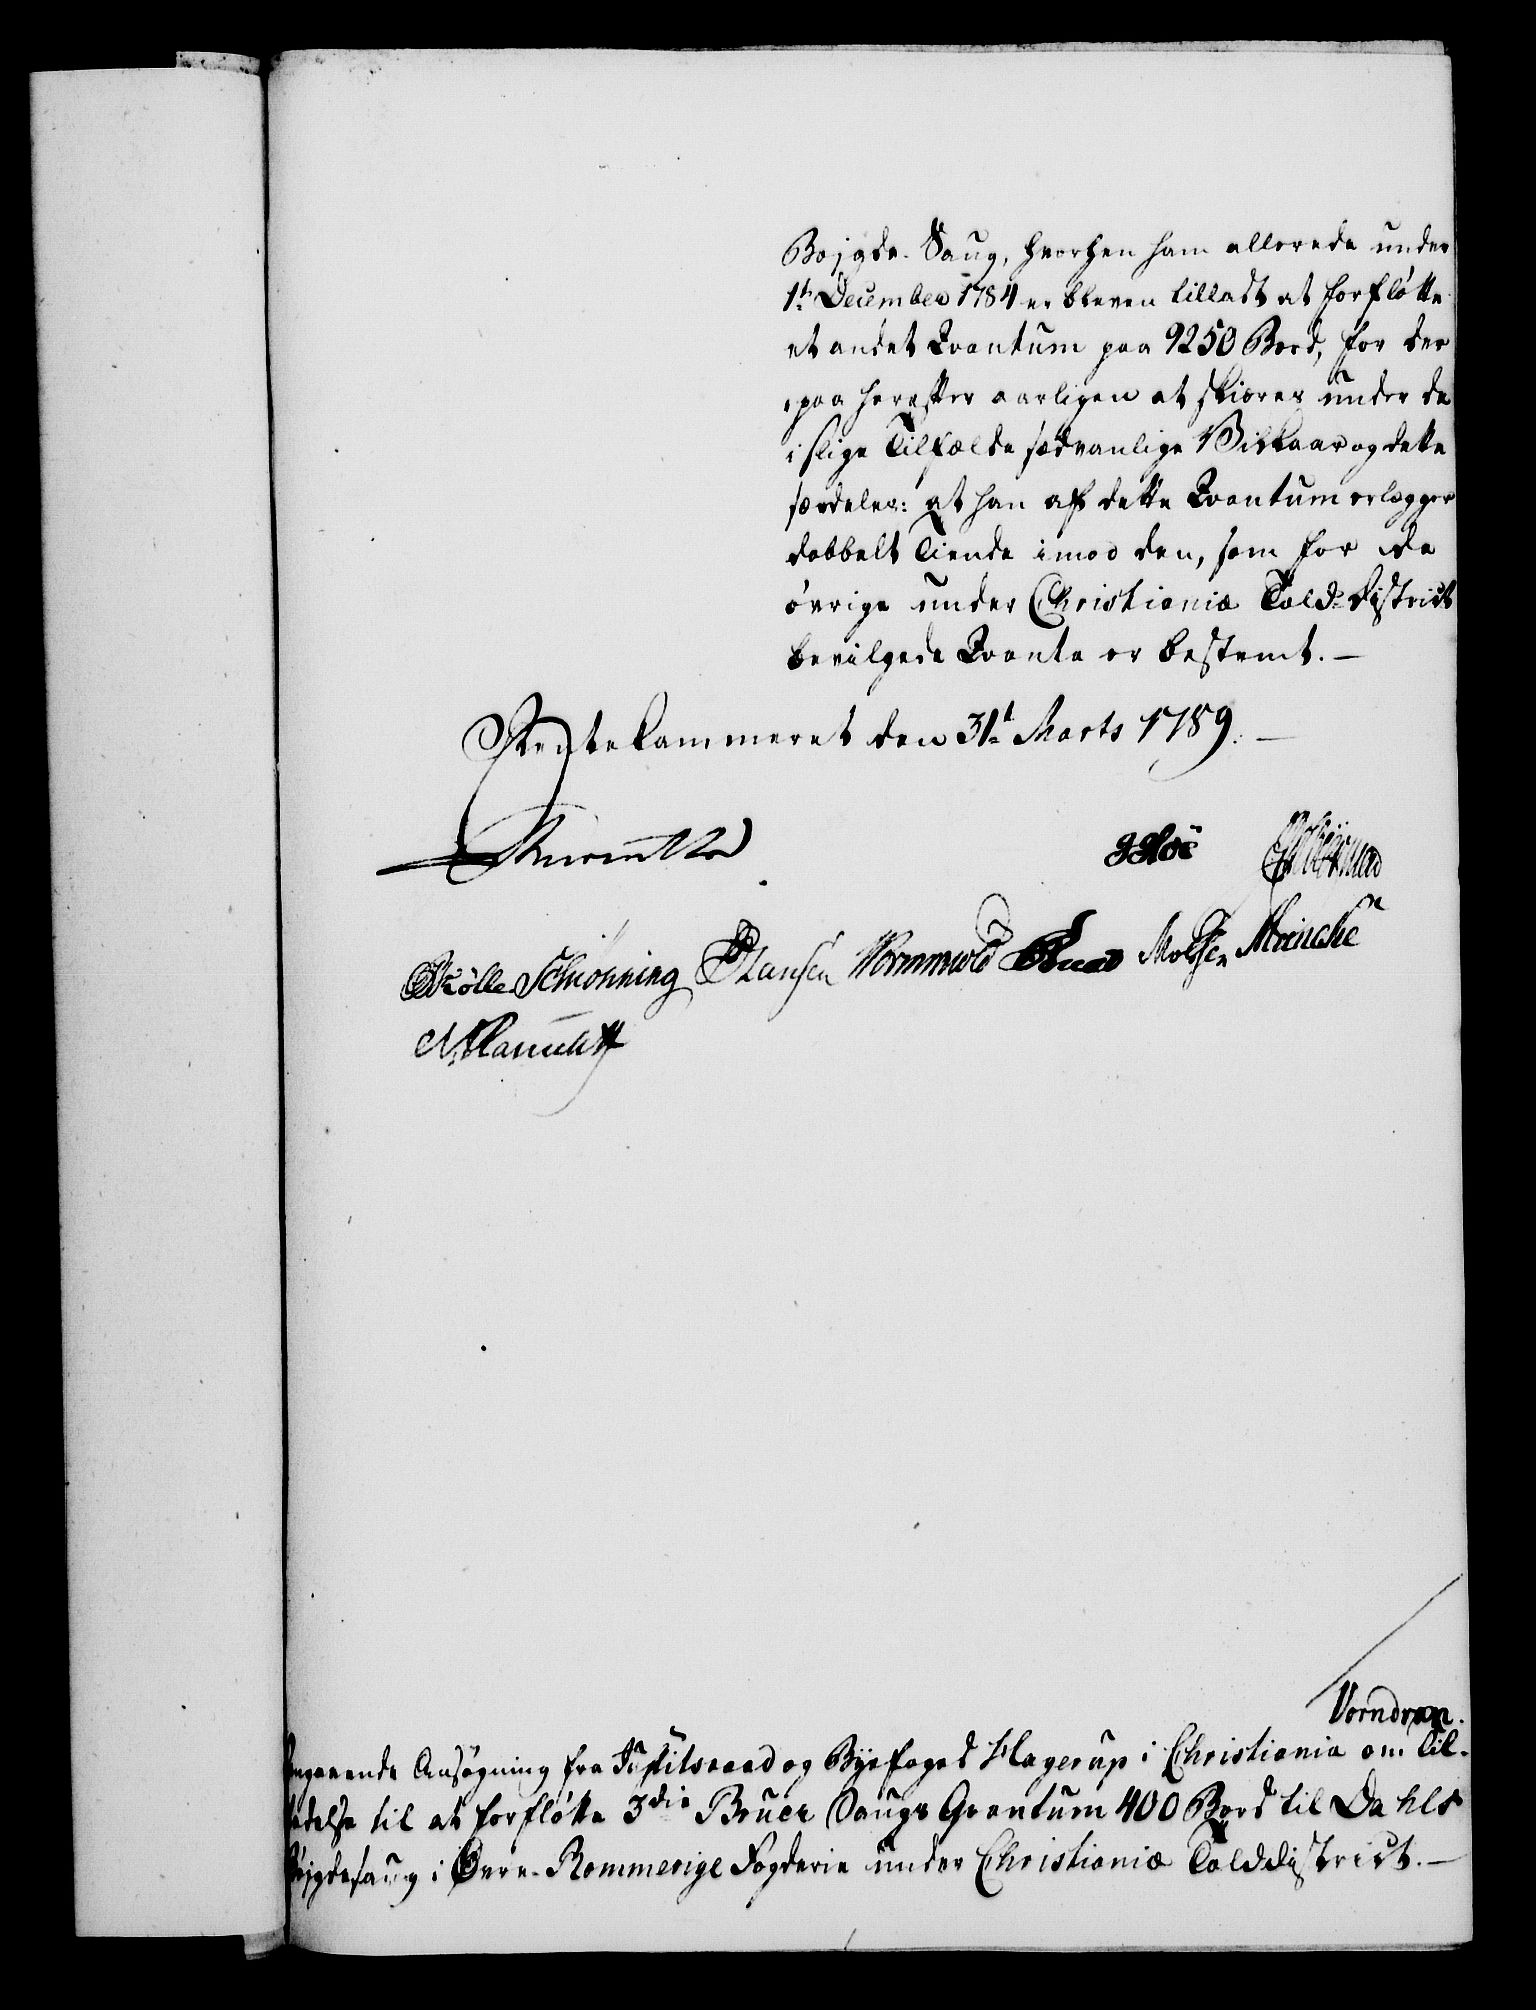 Bojgde-Saug, hvorhen ham allerede under
1te December 1784 er bleven tilladt at forflòtte
et andet Qvantum paa 9250 Bord, for der
paa herefter aarligen at skiæres under de
i slige Tilfælde sædvanlige Vilkaar og dette
særdeles: at han af dette Qvantum erlægger
dobbelt Tiende imod den, som for de
òvrige under Christianiæ Told-District
bevilgede Qvanta er bestemt. —
Rentekammeret den 31te Marts 1789. —
Schiønning Hansen Wormwold
Vorndran.
angaaende Ansøgning fra Justitsraad og Byefoged Hagerup i Christiania om Til-
ladelse til at forflòtte 3die Brues Saugs Qvantum 400 Bord til Dahls
Bojgdesaug i Òvre-Rommerige Fogderie under Christianiæ Tolddistrict. —